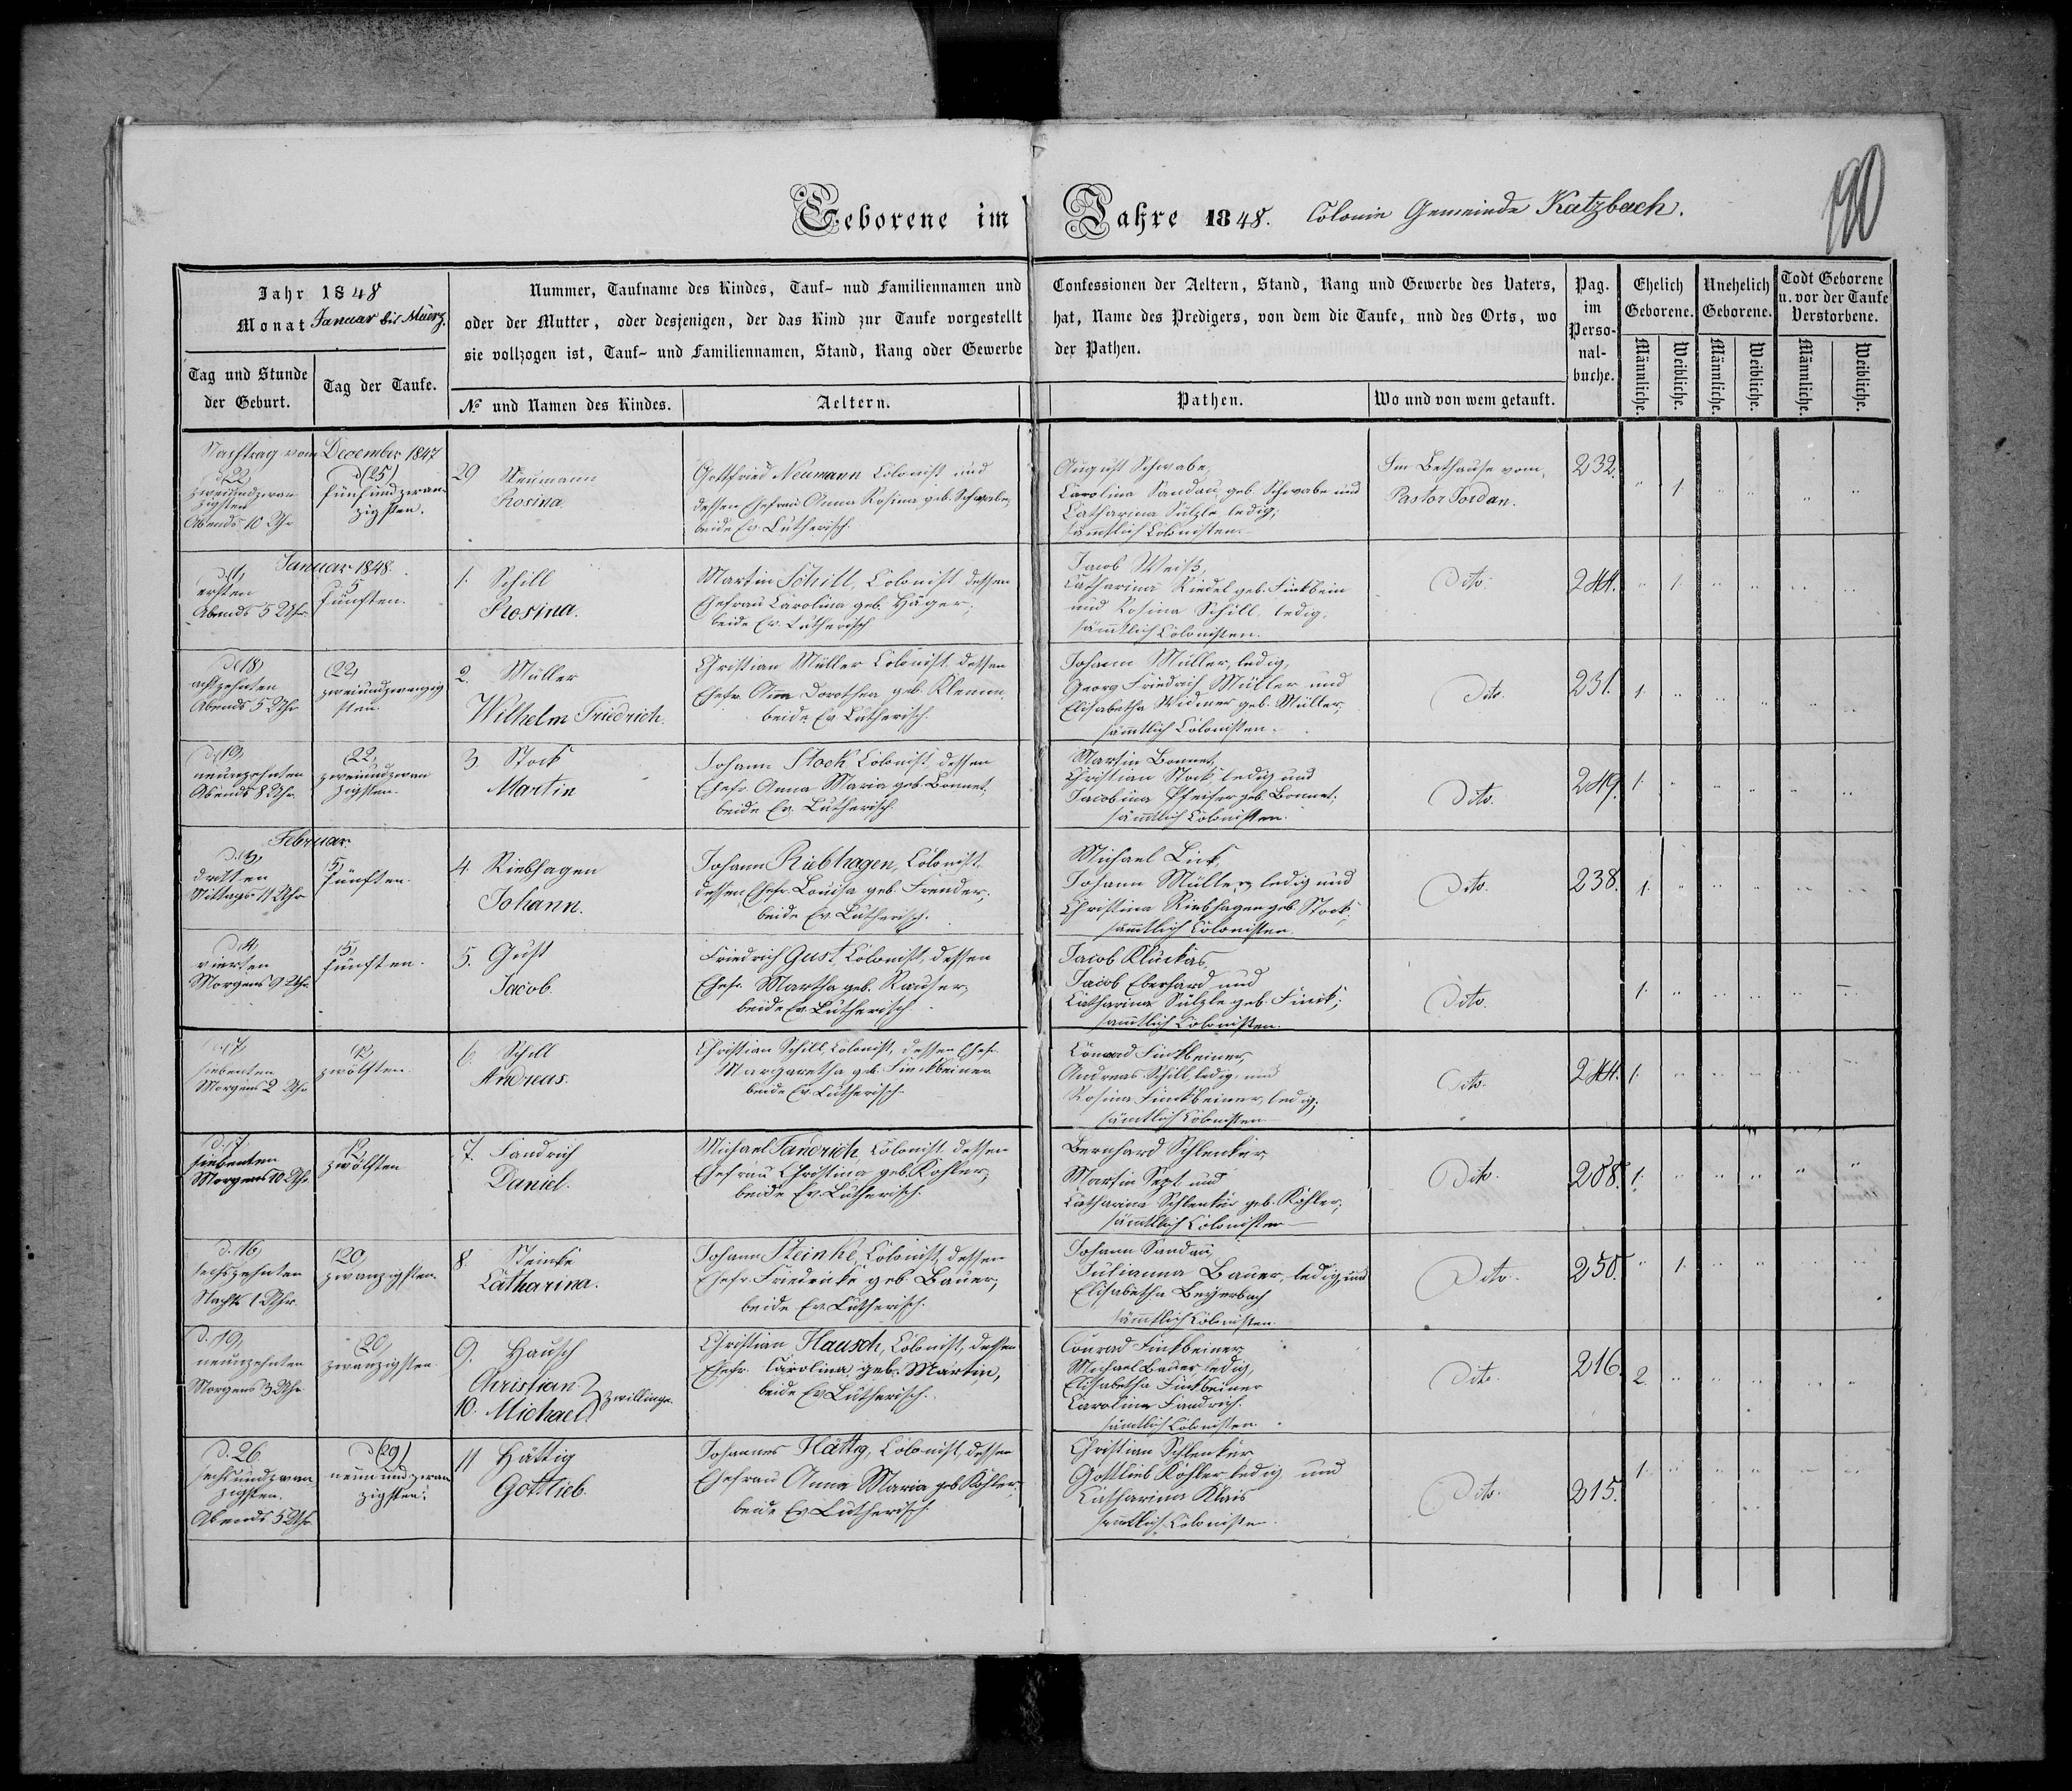 190
Geborene im Jahre 1848. Colonie Gemeinde Katzbach.
Jahr 1848
Monat Januar bis Maerz.
Tag und Stunde der Geburt.
Tag der Taufe.
Nummer, Taufname des Kindes, Tauf- und Familiennamen und Confessionen der Aeltern, Stand, Rang und Gewerbe des Vaters,
oder der Mutter, oder desjenigen, der das Kind zur Taufe vorgestellt hat, Name des Predigers, von dem die Taufe, und des Orts, wo
sie vollzogen ist, Tauf- und Familiennamen, Stand, Rang oder Gewerbe der Pathen.
№ und Namen des Kindes.
Aeltern.
Pathen.
Wo und von wem getauft.
Pag. im Perso-nal-buche.
Ehelich Geborene.
Unehelich Geborene.
Todt Geborene u. vor der Taufe Verstorbene.
Männliche. Weibliche. Männliche. Weibliche. Männliche. Weibliche.
Nachtrag vom December 1847
d. 22
zweiundzwan-
zigsten
Abends 10 Uhr
d. 25
fünfundzwan-
zigsten.
29 Neumann
Rosina.
Gottfried Neumann Colonist und
dessen Ehefrau Anna Rosina geb. Schwabe,
beide Ev. Lutherisch.
August Schwabe,
Carolina Sandau geb. Schwabe und
Catharina Sülzle ledig;
sämtlich Colonisten.
Im Bethause vom
Pastor Jordan.
232. " 1. " " " "
Januar 1848.
d. 1,
ersten
Abends 5 Uhr
5
fünften.
1. Schill
Rosina.
Martin Schill, Colonist dessen
Ehefrau Carolina geb. Häger;
beide Ev. Lutherisch
Jacob Weiß,
Catharina Riedel geb. Finkbein
und Rosina Schill, ledig,
sämmtlich Colonisten.
Dito.
244. " 1. " " " "
d. 18,
achtzehnten
Abends 5 Uhr
22,
zweiundzwanzig
sten.
2. Müller
Wilhelm Friedrich.
Christian Müller Colonist dessen
Ehefr. Anna Dorothea geb. Klemm,
beide Ev. Lutherisch.
Johann Müller, ledig,
Georg Friedrich Müller und
Elisabetha Widmer geb. Müller;
sämtlich Colonisten.
Dito.
231. 1. " " " " "
d. 19,
neunzehnten
Abends 8 Uhr.
22,
zweiundzwan
zigsten.
3 Stock
Martin
Johann Stock Colonist, dessen
Ehefr. Anna Maria geb. Bonnet;
beide Ev. Lutherisch.
Martin Bonnet,
Christian Stock, ledig und
Jacobina Pfeifer geb. Bonnet;
sämtlich Colonisten.
Dito.
249. 1. " " " " "
Februar
d. 3,
dritten
Mittags 11 Uhr
5,
fünften.
4. Riebhagen
Johann.
Johann Riebhagen, Colonist
dessen Ehefr. Louisa geb.
beide Ev. Lutherisch.
Michael
Johann Müller, ledig und
Christina Riebhagen geb. Stock,
sämtlich Colonisten.
Dito.
238. 1. " " " " "
d. 4,
vierten
Morgens 9 Uhr.
5,
fünften.
5. Gust
Jacob.
Friedrich Gust, Colonist, dessen
Ehefr. Martha geb. Rauser,
beide Ev. Lutherisch.
Jacob Kluckas
Jacob Eberhard und
Catharina Sülzle geb. Finck;
sämtlich Colonisten.
Dito.
1. " " " " "
7,
siebenten
Morgens 2 Uhr
12,
zwölften.
6. Schill
Andreas.
Christian Schill, Colonist, dessen Ehefr.
Margaretha geb. Finckbeiner
beide Ev. Lutherisch.
Conrad Finkbeiner,
Andreas Schill, ledig, und
Rosina Finckbeiner ledig;
sämtlich Colonisten.
Dito.
244. 1. " " " " "
d. 7,
siebenten
Morgens 10 Uhr
12,
zwölften
7. Fandrich
Daniel.
Michael Fandrich, Colonist dessen
Ehefrau Christina geb. Köhler;
beide Ev. Lutherisch.
Bernhard Schlenker,
Martin Sept und
Catharina Schlenker geb. Köhler;
sämtlich Colonisten
Dito.
208. 1. " " " " "
d. 16,
sechszehnten
Nachts 1 Uhr.
20,
zwanzigsten.
8. Steinke
Catharina.
Johann Steinke, Colonist, dessen
Ehefr. Friedericke geb. Bauer,
beide Ev. Lutherisch.
Johann Sandau,
Julianna Bauer, ledig, und
Elisabetha Beyerbach
sämtlich Colonisten.
Dito.
250. " 1. " " " "
d. 19,
neunzehnten
Morgens 3 Uhr
20,
zwanzigsten
9. Hausch
Christian
10. Michael } Zwillinge.
Christian Hausch, Colonist, dessen
Ehefr. Carolina, geb. Martin,
beide Ev. Lutherisch.
Conrad Finkbeiner
Michael Bauer ledig,
Elisabetha Finkbeiner
Carolina Fandrich.
sämtlich Colonisten.
Dito.
216. 2. " " " " "
d. 26.
sechsundzwan
zigsten.
Abends 5 Uhr
d. 29
neunundzwan
zigsten.
11 Hättig
Gottlieb.
Johannes Hättig, Colonist, dessen
Ehefrau Anna Maria geb. Köhler,
beide Ev. Lutherisch
Christian Schlenker
Gottlieb Köhler ledig und
Catharina Klais
sämtlich Colonisten.
Dito.
215. 1. " " " " "